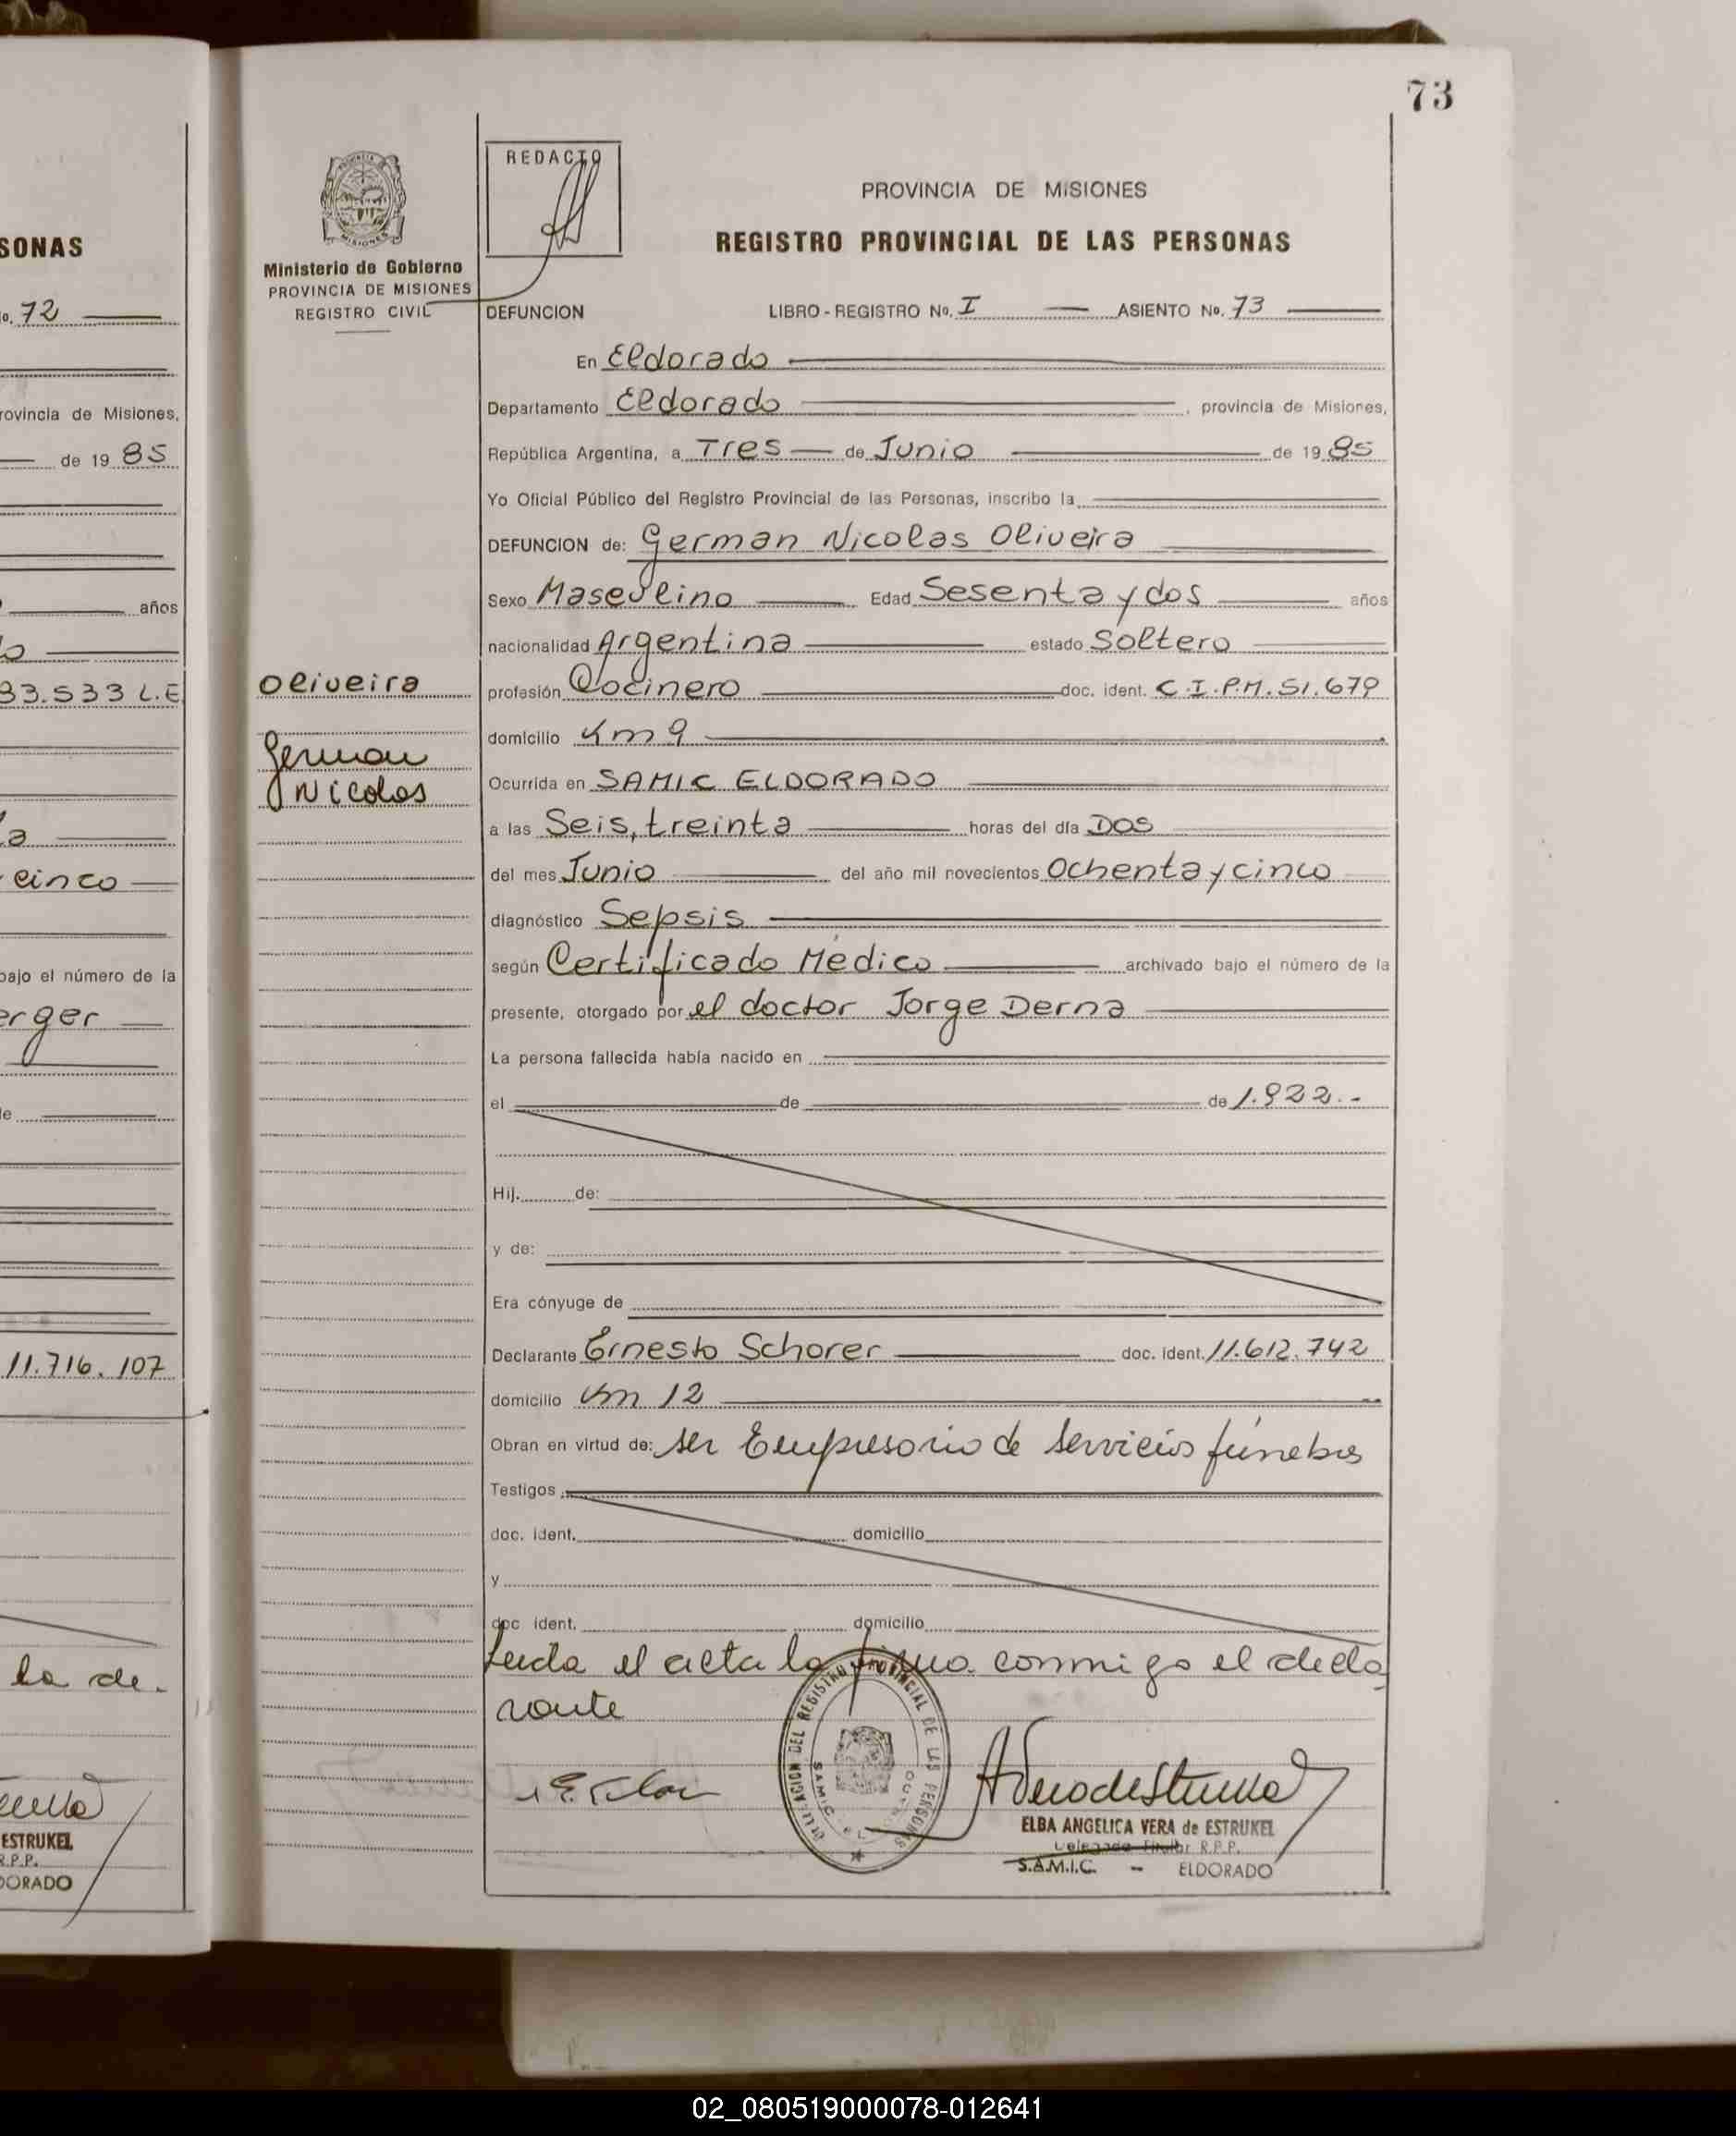 73
SONAS
No. 72
rovincia de Misiones,
de 19 85
años
33.533 L.E
cinco
bajo el número de la
erger
11.716.107
la de.
ESTRUKEL
R.P.P.
DORADO
PROVINCIA DE MISIONES
Ministerio de Gobierno
PROVINCIA DE MISIONES
REGISTRO CIVIL
Oliveira
German
Nicolas
REDACTO
PROVINCIA DE MISIONES
REGISTRO PROVINCIAL DE LAS PERSONAS
DEFUNCION LIBRO - REGISTRO No. I ASIENTO No. 73
En Eldorado
Departamento Eldorado, provincia de Misiones,
República Argentina, a Tres de Junio de 19 85
Yo Oficial Público del Registro Provincial de las Personas, inscribo la
DEFUNCION de: German Nicolas Oliveira
Sexo Masculino Edad Sesenta y dos años
nacionalidad Argentina estado Soltero
profesión Cocinero doc. ident. C.I.P.M. 51.679
domicilio Km 9
Ocurrida en SAMIC ELDORADO
a las Seis, treinta horas del día Dos
del mes Junio del año mil novecientos Ochenta y cinco
diagnóstico Sepsis
según Certificado Médico archivado bajo el número de la
presente, otorgado por el doctor Jorge Derna
La persona fallecida había nacido en
el de de 1.922.-
Hij. de:
y de:
Era cónyuge de
Declarante Ernesto Schorer doc. ident. 11.612.742
domicilio Km 12
Obran en virtud de: ser Empresario de servicios fúnebres
Testigos
doc. ident. domicilio
y
doc ident. domicilio
Leida el acta la firma conmigo el decla
rante
DELEGACION DEL REGISTRO PROVINCIAL DE LAS PERSONAS
S.A.M.I.C. ELDORADO
ELBA ANGELICA VERA de ESTRUKEL
Delegada Titular R.P.P.
S.A.M.I.C. - ELDORADO
02_080519000078-012641